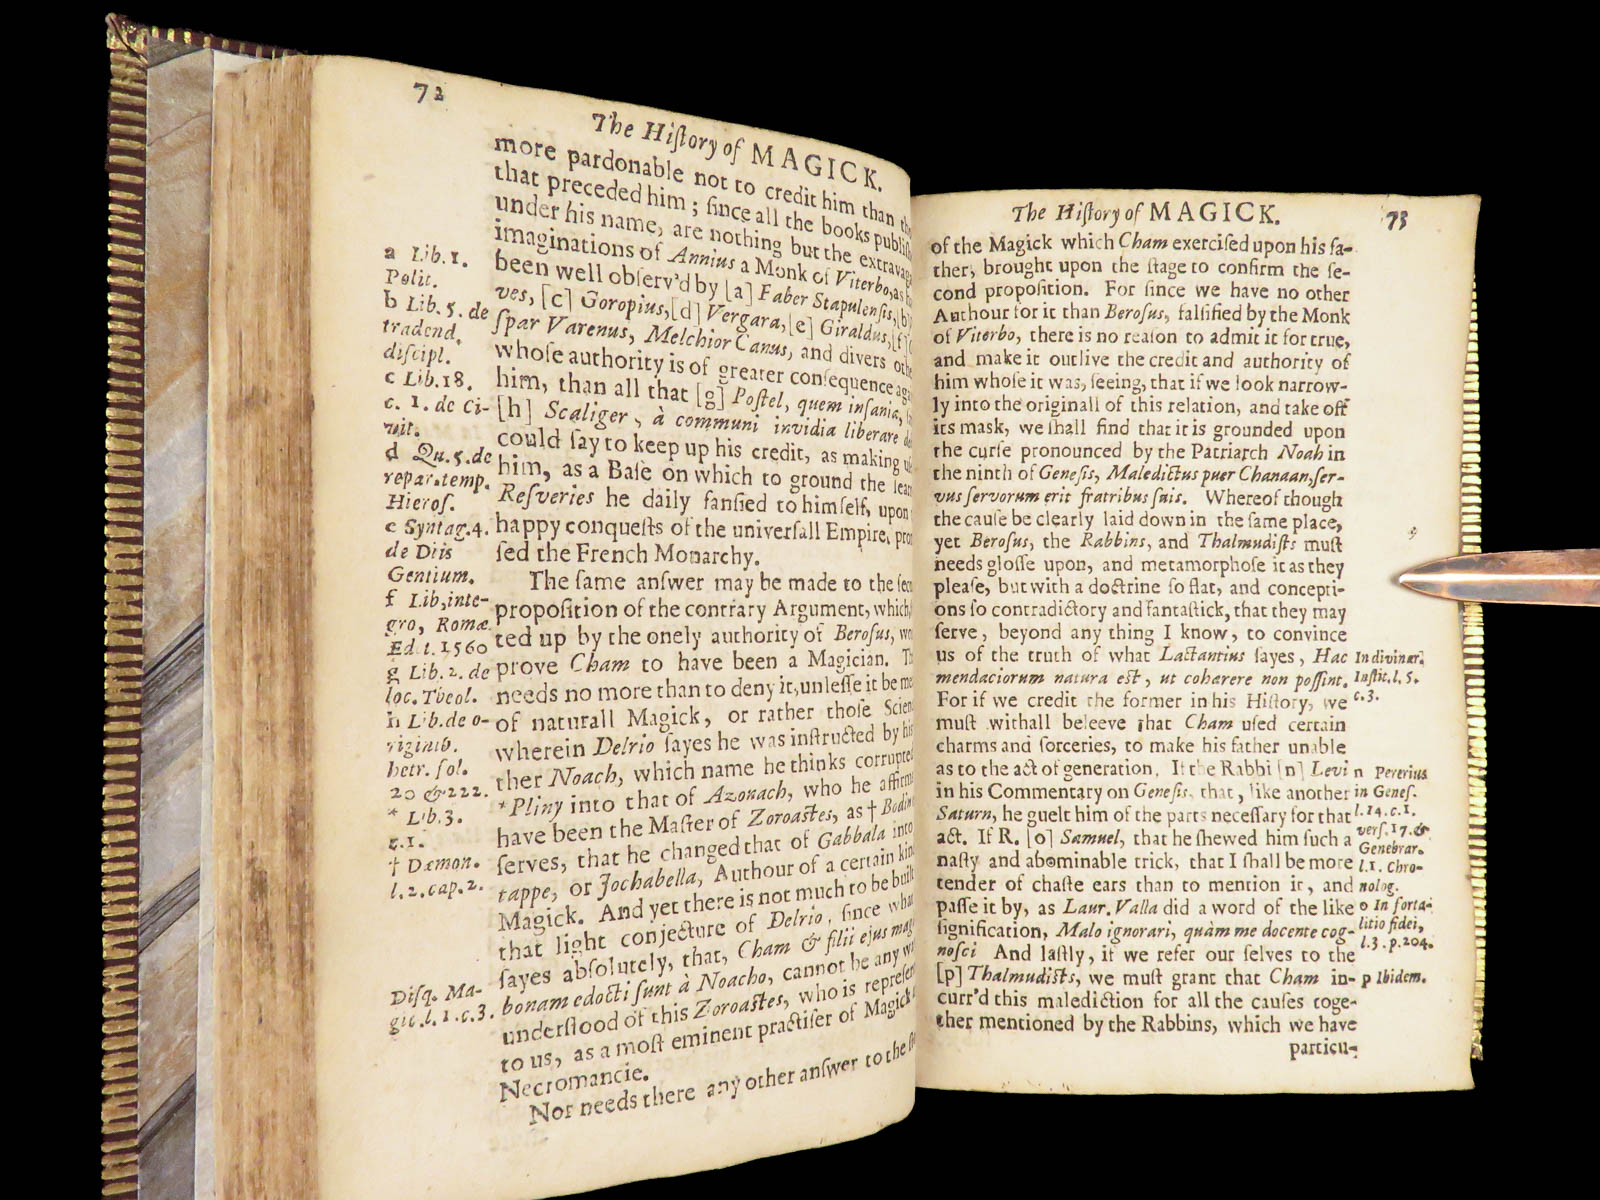 72
The Hiſtory of MAGICK.
more pardonable not to credit him than
that preceded him; ſince all the books
under his name, are nothing but the
imaginations of Annius a Monk of Viterbo, as
been well obſerv'd by [a] Faber Stapulenſis, [b]
ves, [c] Goropius, [d] Vergara, [e] Giraldus, [f]
ſpar Varenus, Melchior Canus, and divers
whoſe authority is of greater conſequence
him, than all that [g] Poſtel, quem inſania,
[h] Scaliger, à communi invidia liberare
could ſay to keep up his credit, as making
him, as a Baſe on which to ground the
Reſveries he daily fanſied to himſelf, upon
happy conqueſts of the univerſall Empire,
ſed the French Monarchy.
The ſame anſwer may be made to the
propoſition of the contrary Argument, which
ted up by the onely authority of Beroſus,
prove Cham to have been a Magician.
needs no more than to deny it, unleſſe it be
of naturall Magick, or rather thoſe
wherein Delrio ſayes he was inſtructed by
ther Noach, which name he thinks
*Pliny into that of Azonach, who he
have been the Maſter of Zoroaſtes, as †
ſerves, that he changed that of Gabbala into
tappe, or Jochabella, Authour of a certain
Magick. And yet there is not much to be
that light conjecture of Delrio, ſince
ſayes abſolutely, that, Cham & filii ejus
bonam edocti ſunt à Noacho, cannot be any
underſtood of this Zoroaſtes, who is
to us, as a moſt eminent practiſer of Magick
Necromancie.
Nor needs there any other anſwer to the
a Lib. 1.
Polit.
b Lib. 5. de
tradend.
diſcipl.
c Lib. 18.
c. 1. de Ci-
vit.
d Qu. 5. de
repar. temp.
Hieroſ.
e Syntag. 4.
de Diis
Gentium.
f Lib, inte-
gro, Romæ
Edit. 1560
g Lib. 2. de
loc. Theol.
h Lib. de o-
riginib.
hetr. fol.
20 & 222.
* Lib. 3.
c. 1.
† Dæmon.
l. 2. cap. 2.
Diſq. Ma-
gic. l. 1. c. 3.
The Hiſtory of MAGICK.
73
of the Magick which Cham exerciſed upon his fa-
ther, brought upon the ſtage to confirm the ſe-
cond propoſition. For ſince we have no other
Authour for it than Beroſus, falſified by the Monk
of Viterbo, there is no reaſon to admit it for true,
and make it outlive the credit and authority of
him whoſe it was, ſeeing, that if we look narrow-
ly into the originall of this relation, and take off
its mask, we ſhall find that it is grounded upon
the curſe pronounced by the Patriarch Noah in
the ninth of Geneſis, Maledictus puer Chanaan, ſer-
vus ſervorum erit fratribus ſuis. Whereof though
the cauſe be clearly laid down in the ſame place,
yet Beroſus, the Rabbins, and Thalmudiſts muſt
needs gloſſe upon, and metamorphoſe it as they
pleaſe, but with a doctrine ſo flat, and concepti-
ons ſo contradictory and fantaſtick, that they may
ſerve, beyond any thing I know, to convince
us of the truth of what Lactantius ſayes, Hac
mendaciorum natura eſt, ut coharere non poſſint.
For if we credit the former in his Hiſtory, we
muſt withall beleeve that Cham uſed certain
charms and ſorceries, to make his father unable
as to the act of generation. If the Rabbi [n] Levi
in his Commentary on Geneſis, that, like another
Saturn, he guelt him of the parts neceſſary for that
act. If R. [o] Samuel, that he ſhewed him ſuch a
naſty and abominable trick, that I ſhall be more
tender of chaſte ears than to mention it, and
paſſe it by, as Laur. Valla did a word of the like
ſignification, Malo ignorari, quàm me docente cog-
noſci And laſtly, if we refer our ſelves to the
[p] Thalmudiſts, we muſt grant that Cham in-
curr'd this malediction for all the cauſes toge-
ther mentioned by the Rabbins, which we have
particu-
In divinar.
Inſtit. l. 5.
c. 3.
n Pererius
in Geneſ.
l. 14. c. 1.
verſ. 17. &
Genebrar.
l. 1. Chro-
nolog.
o In forta-
litio fidei,
l. 3. p. 204.
p Ibidem.